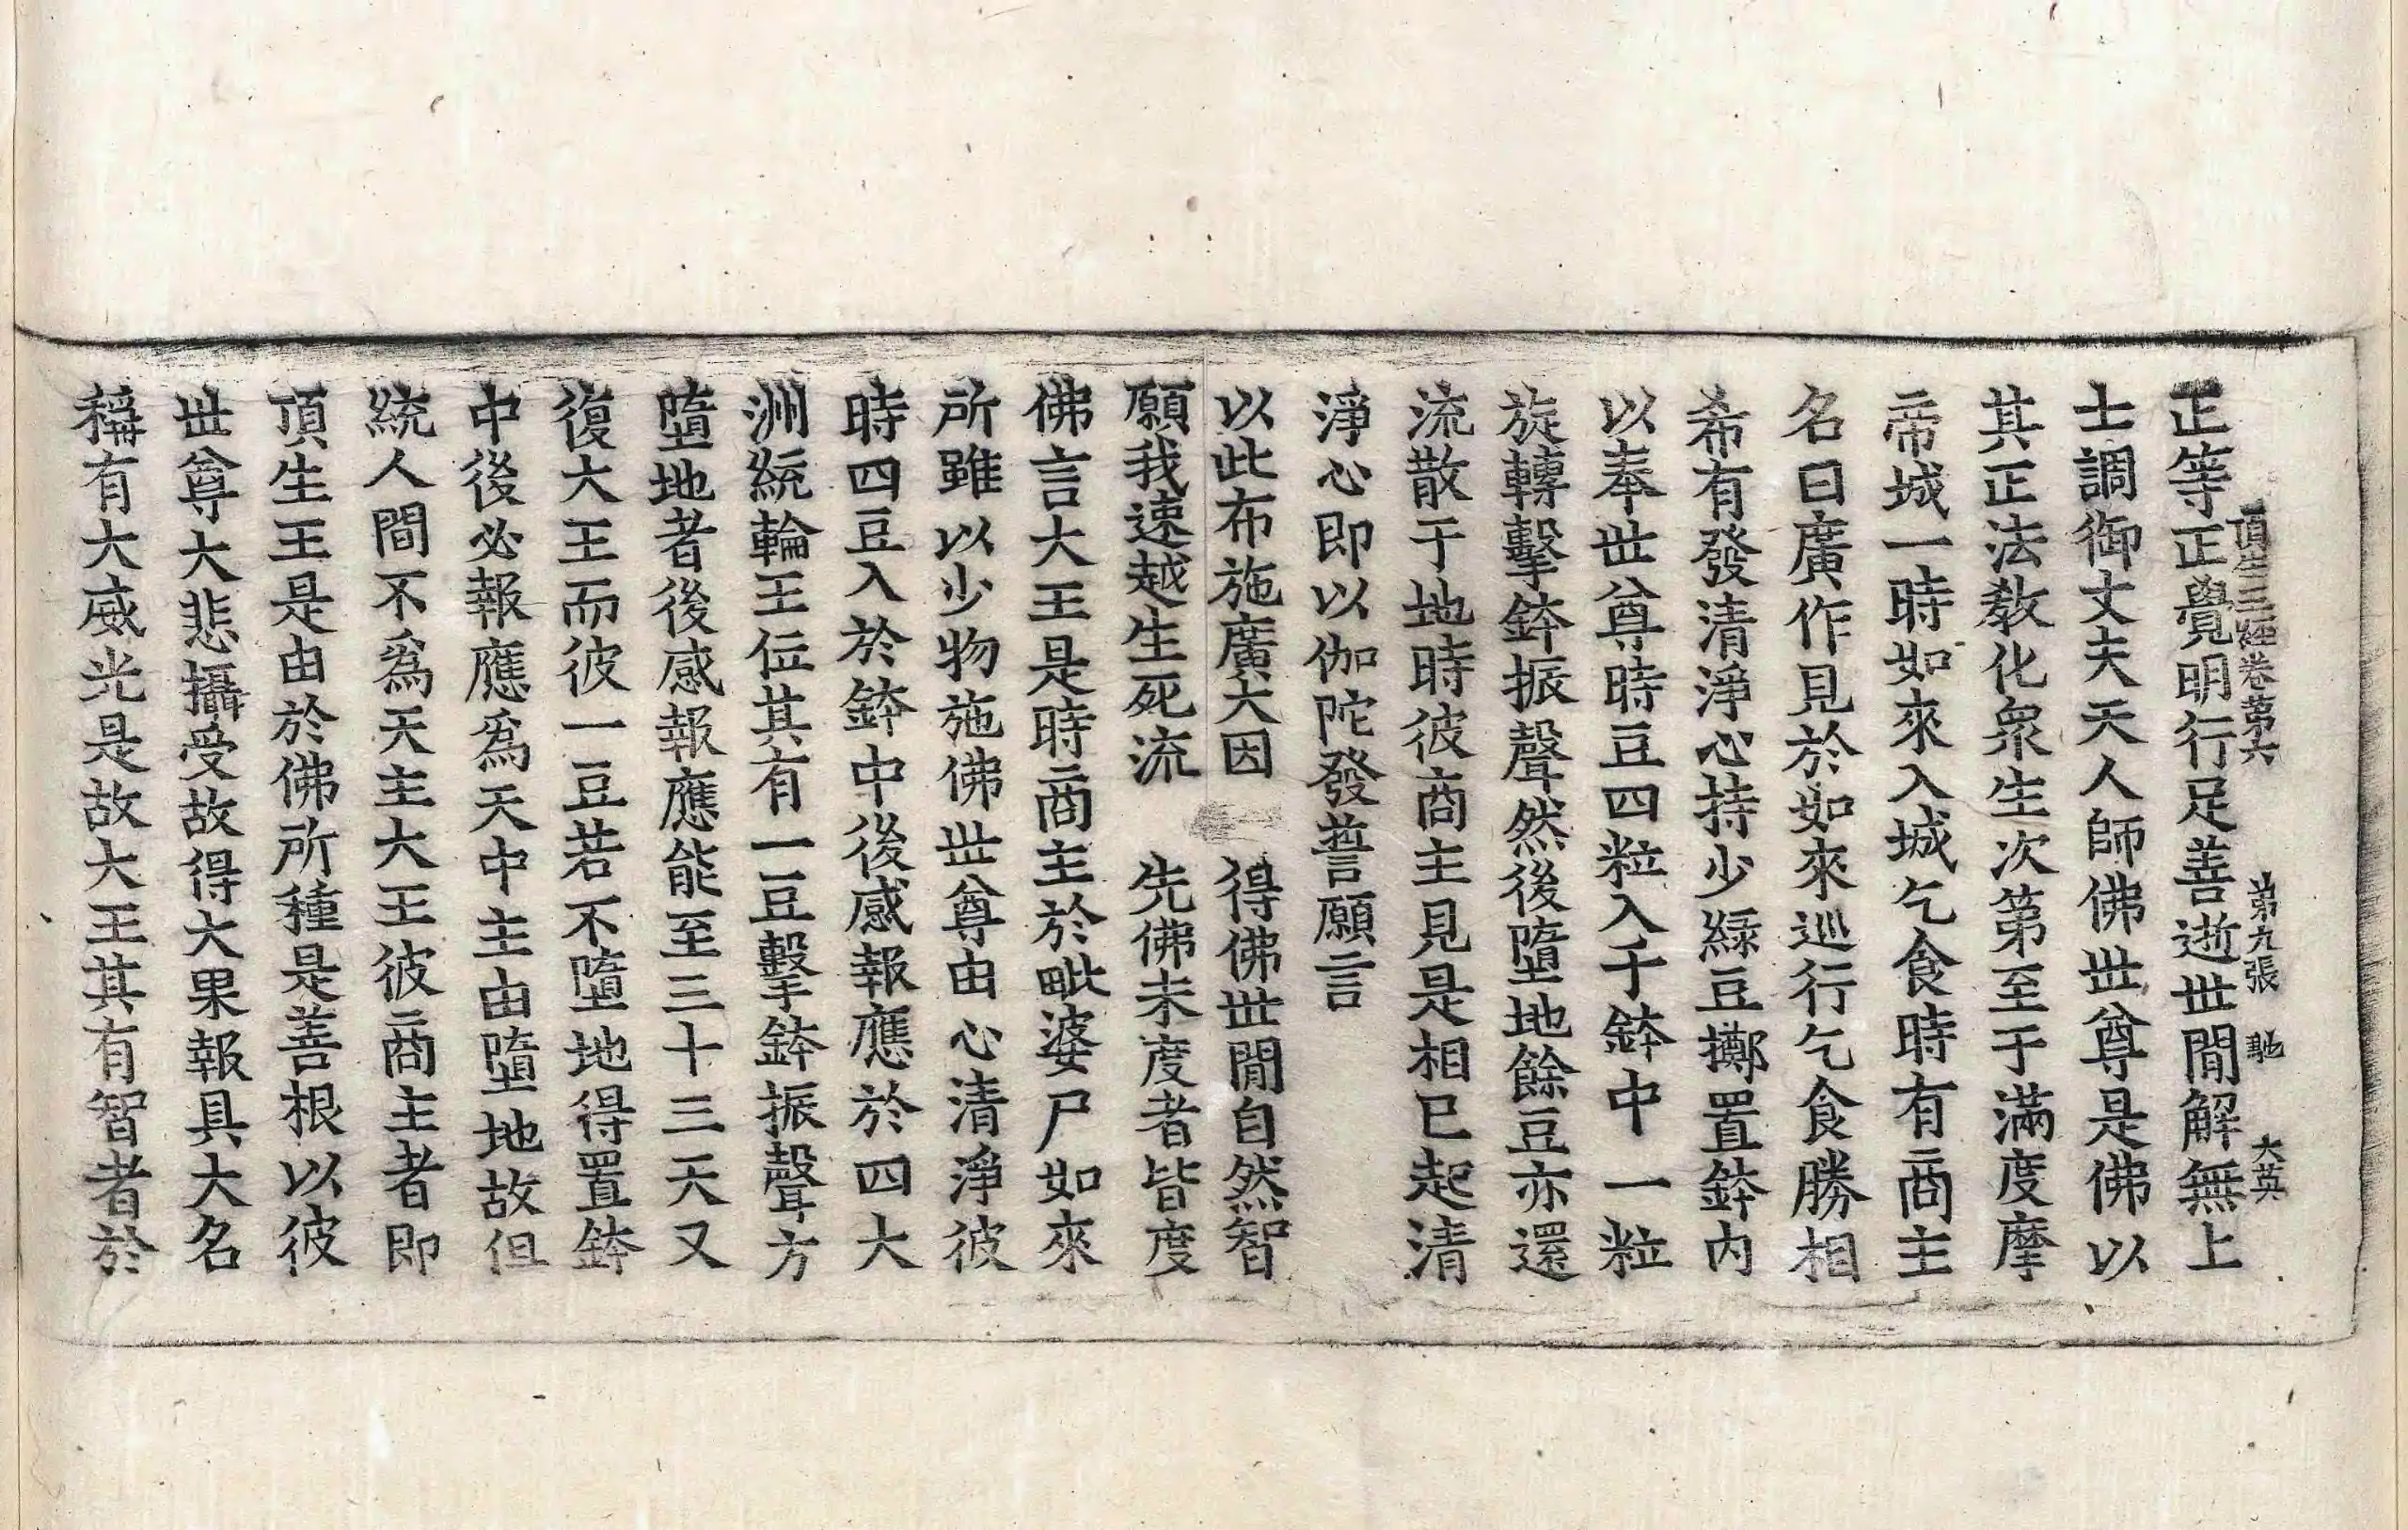 正等正覺明行足善逝世閒解無上
頂生王經卷第六　第九張　馳　大英
士調御丈夫天人師佛世尊是佛以
其正法教化衆生次第至于滿度摩
帝城一時如來入城乞食時有商主
名曰廣作見於如來巡行乞食勝相
希有發清淨心持少綠豆擲置鉢內
以奉世尊時豆四粒入于鉢中一粒
旋轉擊鉢振聲然後墮地餘豆亦還
流散于地時彼商主見是相已起清
淨心即以伽陀發誓願言
以此布施廣大因　得佛世閒自然智
願我速越生死流　先佛未度者皆度
佛言大王是時商主於毗婆尸如來
所雖以少物施佛世尊由心清淨彼
時四豆入於鉢中後感報應於四大
洲統輪王位其有一豆擊鉢振聲方
墮地者後感報應能至三十三天又
復大王而彼一豆若不墮地得置鉢
中後必報應爲天中主由墮地故但
統人間不爲天主大王彼商主者即
頂生王是由於佛所種是善根以彼
世尊大悲攝受故得大果報具大名
稱有大威光是故大王其有智者於